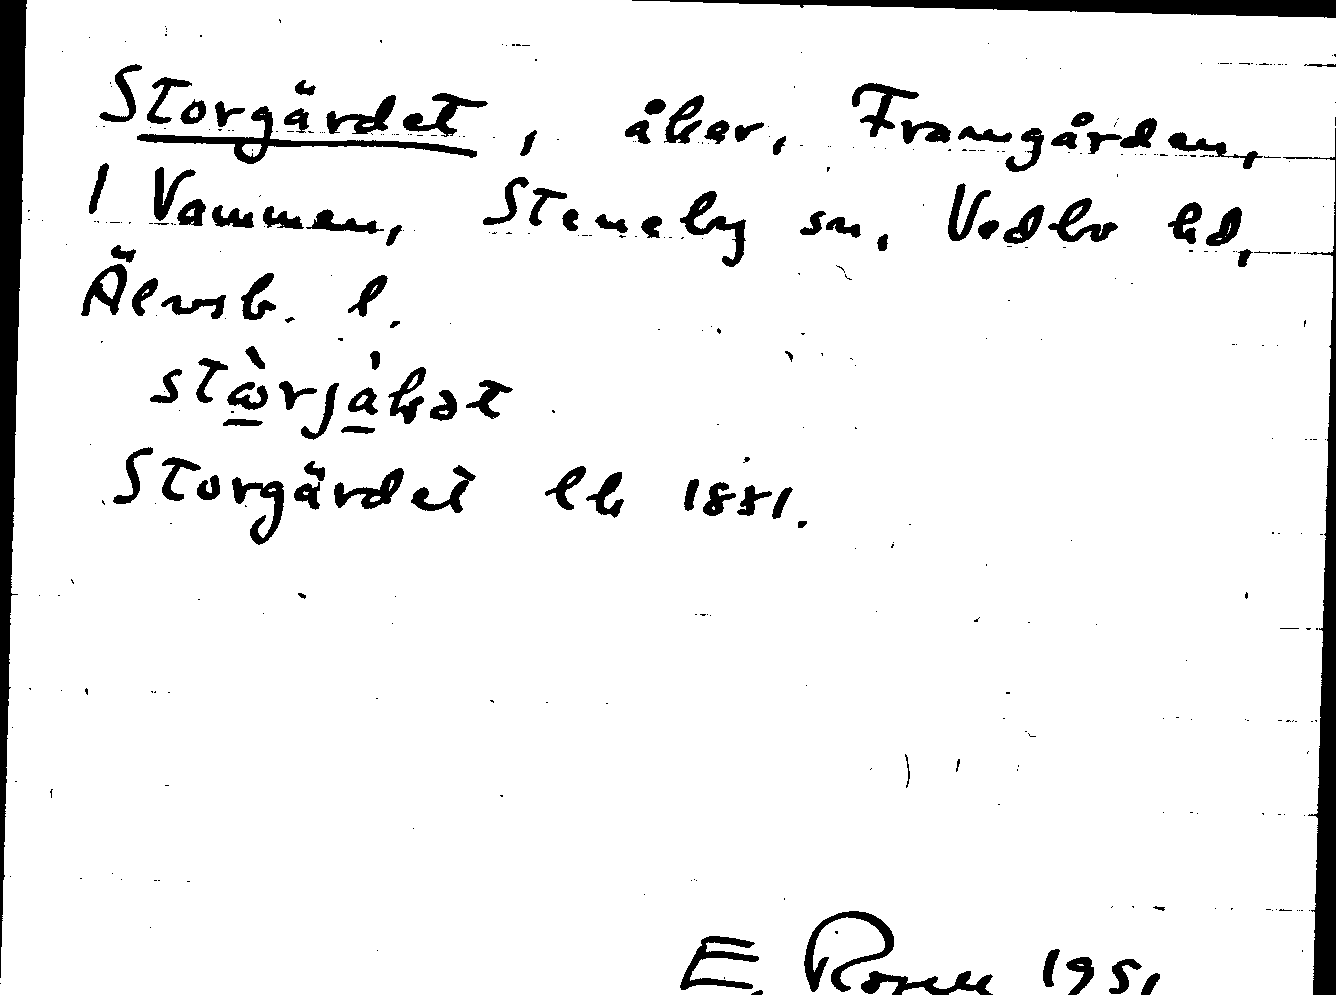 Storgärdet, åker, Framgården,
1 Vammen, Steneby sn, Vedbo hd,
Älvsb. l.
Storgärdet lk 1881.
E. Rosell 1951